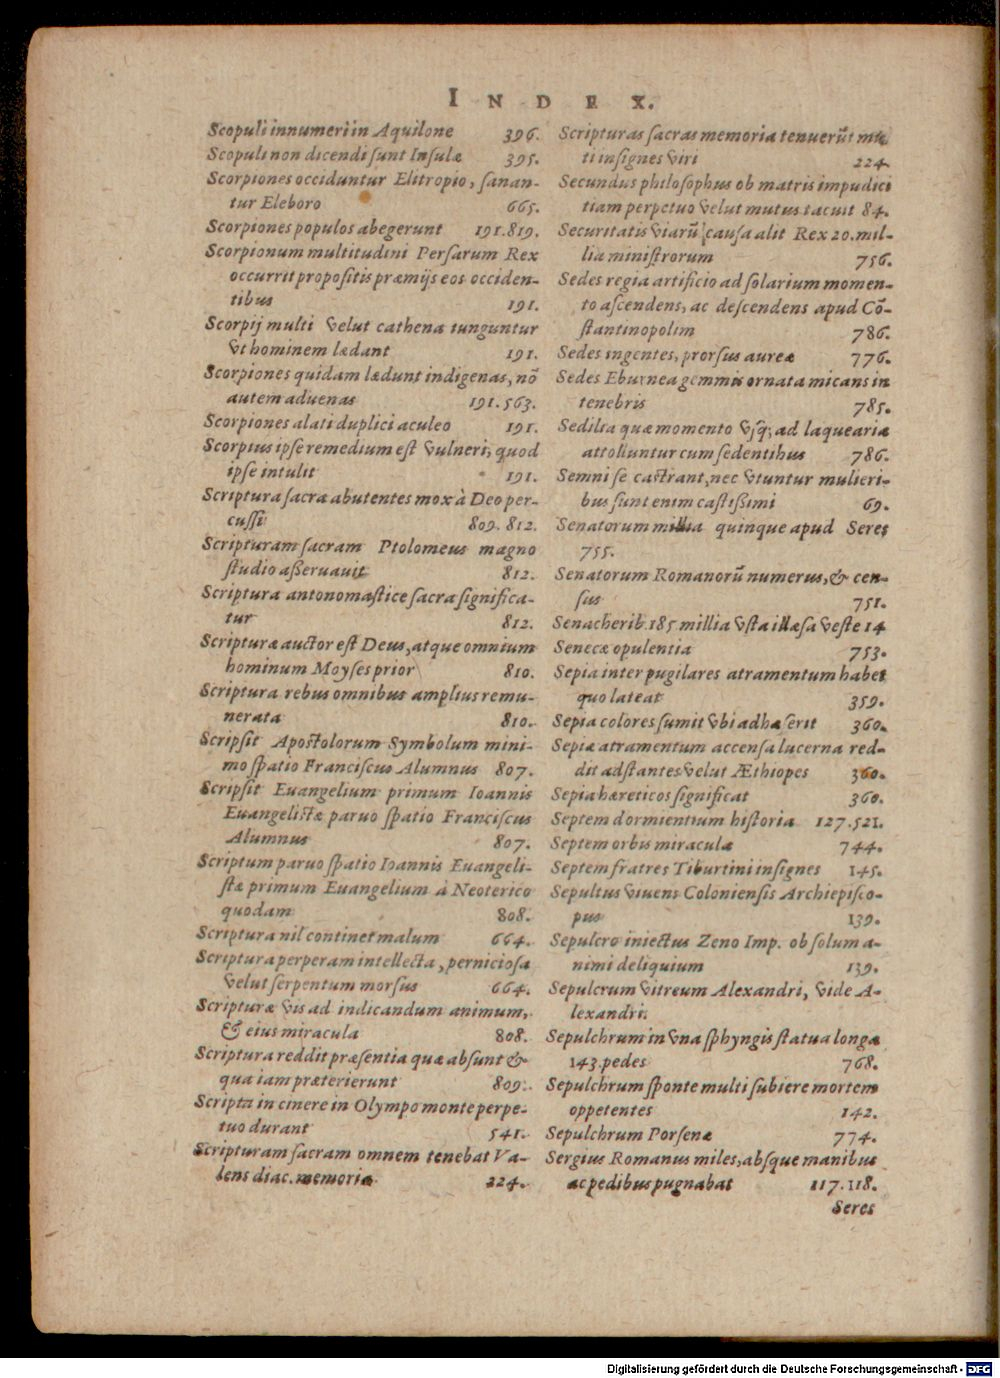 INDEX.
Scopuli innumeri in Aquilone 396.
Scopuli non dicendi sunt Insulæ 395.
Scorpiones occiduntur Elitropio, sanan-
tur Eleboro 665.
Scorpiones populos abegerunt 191.819.
Scorpionum multitudini Persarum Rex
occurrit propositis præmijs eos occiden-
tibus 191.
Scorpij multi velut cathena iunguntur
vt hominem lædant 191.
Scorpiones quidam lædunt indigenas, nõ
autem aduenas 191.563.
Scorpiones alati duplici aculeo 191.
Scorpius ipse remedium est vulneri, quod
ipse intulit 191.
Scriptura sacra abutentes mox à Deo per-
cussi 809. 812.
Scripturam sacram Ptolomeus magno
studio asseruauit 812.
Scriptura antonomastice sacra significa-
tur 812.
Scripturæ auctor est Deus, atque omnium
hominum Moyses prior 810.
Scriptura rebus omnibus amplius remu-
nerata 810.
Scripsit Apostolorum Symbolum mini-
mo spatio Franciscus Alumnus 807.
Scripsit Euangelium primum Ioannis
Euangelistæ paruo spatio Franciscus
Alumnus 807.
Scriptum paruo spatio Ioannis Euangeli-
stæ primum Euangelium à Neoterico
quodam 808.
Scriptura nil continet malum 664.
Scriptura perperam intellecta, perniciosa
velut serpentum morsus 664.
Scripturæ vis ad indicandum animum,
& eius miracula 808.
Scriptura reddit præsentia quæ absunt &
quæ iam præterierunt 809.
Scripta in cinere in Olympo monte perpe-
tuo durant 541.
Scripturam sacram omnem tenebat Va-
lens diac. memoria 224.
Scripturas sacras memoria tenuerũt mul
ti insignes viri 224.
Secundus philosophus ob matris impudici
tiam perpetuo velut mutus tacuit 84.
Securitatis viarũ causa alit Rex 20. mil-
lia ministrorum 756.
Sedes regia artificio ad solarium momen-
to ascendens, ac descendens apud Cõ-
stantinopolim 786.
Sedes ingentes, prorsus aureæ 776.
Sedes Eburnea gemmis ornata micans in
tenebris 785.
Sedilia quæ momento vsq; ad laquearia
attolluntur cum sedentibus 786.
Semni se castrant, nec vtuntur mulieri-
bus sunt enim castissimi 69.
Senatorum millia quinque apud Seres
755.
Senatorum Romanorũ numerus, & cen-
sus 751.
Senacherib. 185 millia vsta illæsa veste 14
Senecæ opulentia 753.
Sepia inter pugilares atramentum habet
quo lateat 359.
Sepia colores sumit vbi adhæserit 360.
Sepiæ atramentum accensa lucerna red-
dit adstantes velut Æthiopes 360.
Sepia hæreticos significat 360.
Septem dormientium historia 127.521.
Septem orbis miracula 744.
Septem fratres Tiburtini insignes 145.
Sepultus viuens Coloniensis Archiepisco-
pus 139.
Sepulcro iniectus Zeno Imp. ob solum a-
nimi deliquium 139.
Sepulcrum vitreum Alexandri, vide A-
lexandri.
Sepulchrum in vna sphyngis statua longa
143. pedes 768.
Sepulchrum sponte multi subiere mortem
oppetentes 142.
Sepulchrum Porsenæ 774.
Sergius Romanus miles, absque manibus
ac pedibus pugnabat 117.118.
Seres
Digitalisierung gefördert durch die Deutsche Forschungsgemeinschaft - DFG